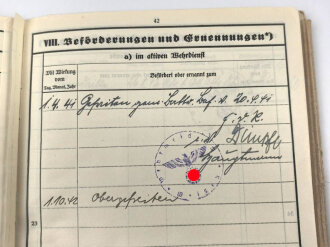 42
VIII. Beförderungen und Ernennungen*)
a) im aktiven Wehrdienst
Mit Wirkung vom
Tag, Monat, Jahr
Befördert oder ernannt zum
1.4.41 Gefreiten gem. Batls. Bef. v. 20.4.41
Hauptmann
1.10.42 Obergefreiten
23